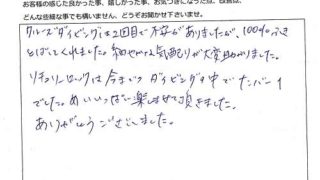 お客様の感じた良かった事、嬉しかった事、お気づきになった点、改善点、
どんな些細な事でも構いません。どうぞお聞かせ下さいませ。
クルーズダイビングは2回目で不安がありましたが、100%ふき
とばしてくれました。細やかな気配りが大変助かりました。
リチェリューロックは今までダイビングの中でナンバー1
でした。めいいっぱい楽しませて頂きました。
ありがとうございました。